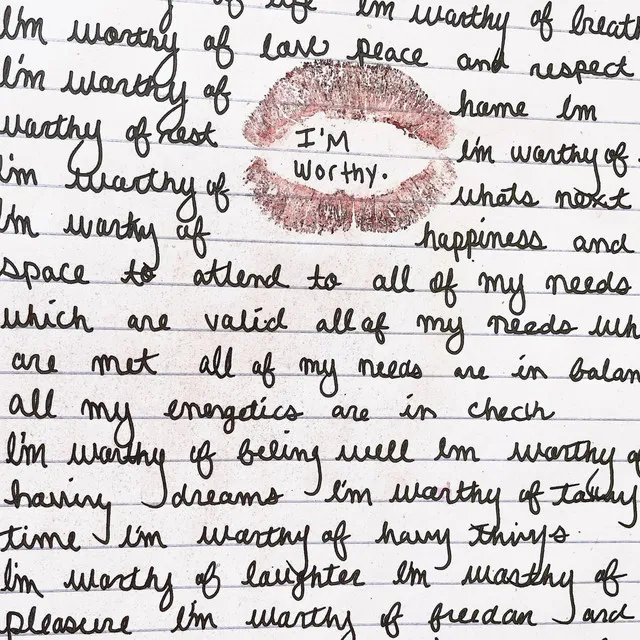 of life Im worthy of breath
I'm worthy of love peace and respect
I'm worthy of home Im
worthy of rest I'M I'm worthy of
I'm worthy of worthy. whats next
I'm worthy of happiness and
space to attend to all of my needs
which are valid all of my needs wh
are met all of my needs are in balan
all my energetics are in check
I'm worthy of being well Im worthy of
having dreams I'm worthy of taking
time I'm worthy of having things
I'm worthy of laughter Im worthy of
pleasure I'm worthy of freedom and